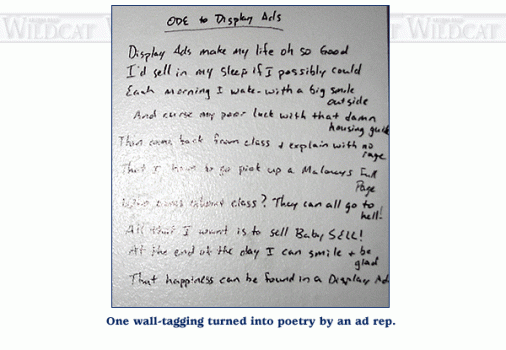 WILDCAT
WILDCAT
ODE to Display Ads
Display Ads make my life oh so Good
I'd sell in my sleep if I possibly could
Each morning I wake with a big smile
outside
And curse my poor luck with that damn
housing guide
Then come back from class & explain with no
rage
That I have to go pick up a Maloneys Full
Page
Who cares about class? They can all go to
hell!
All that I want is to sell Baby SELL!
At the end of the day I can smile & be
glad
That happiness can be found in a Display Ad
One wall-tagging turned into poetry by an ad rep.